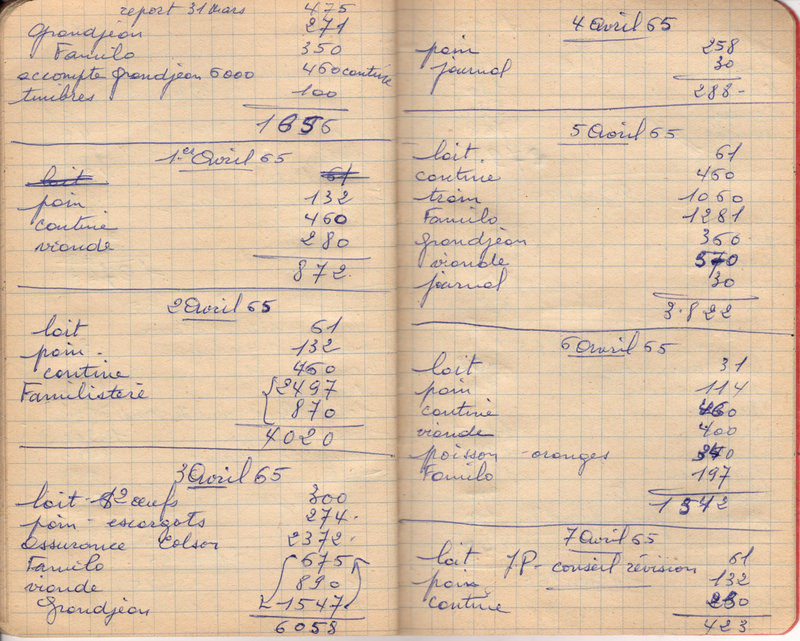 report 31 Mars 475
Grandjean 271
Familo 350
accompte Grandjean 6000 460 cantine
timbres 100
1656
1er Avril 65
lait 61
pain 132
cantine 460
viande 280
872
2 Avril 65
lait 61
pain 132
cantine 460
Familistère 2497
870
4020
3 Avril 65
lait - oeufs 300
pain - escargots 274
assurance 2372
Familo 675
viande 890
Grandjean 1547
6058
4 Avril 65
pain 258
journal 30
288
5 Avril 65
lait 61
cantine 460
train 1060
Familo 1281
Grandjean 360
viande 570
journal 30
3.822
6 Avril 65
lait 31
pain 114
cantine 460
viande 400
poisson - oranges 340
Familo 197
1542
7 Avril 65
lait J.P- conseil révision 61
pain 132
cantine 230
423